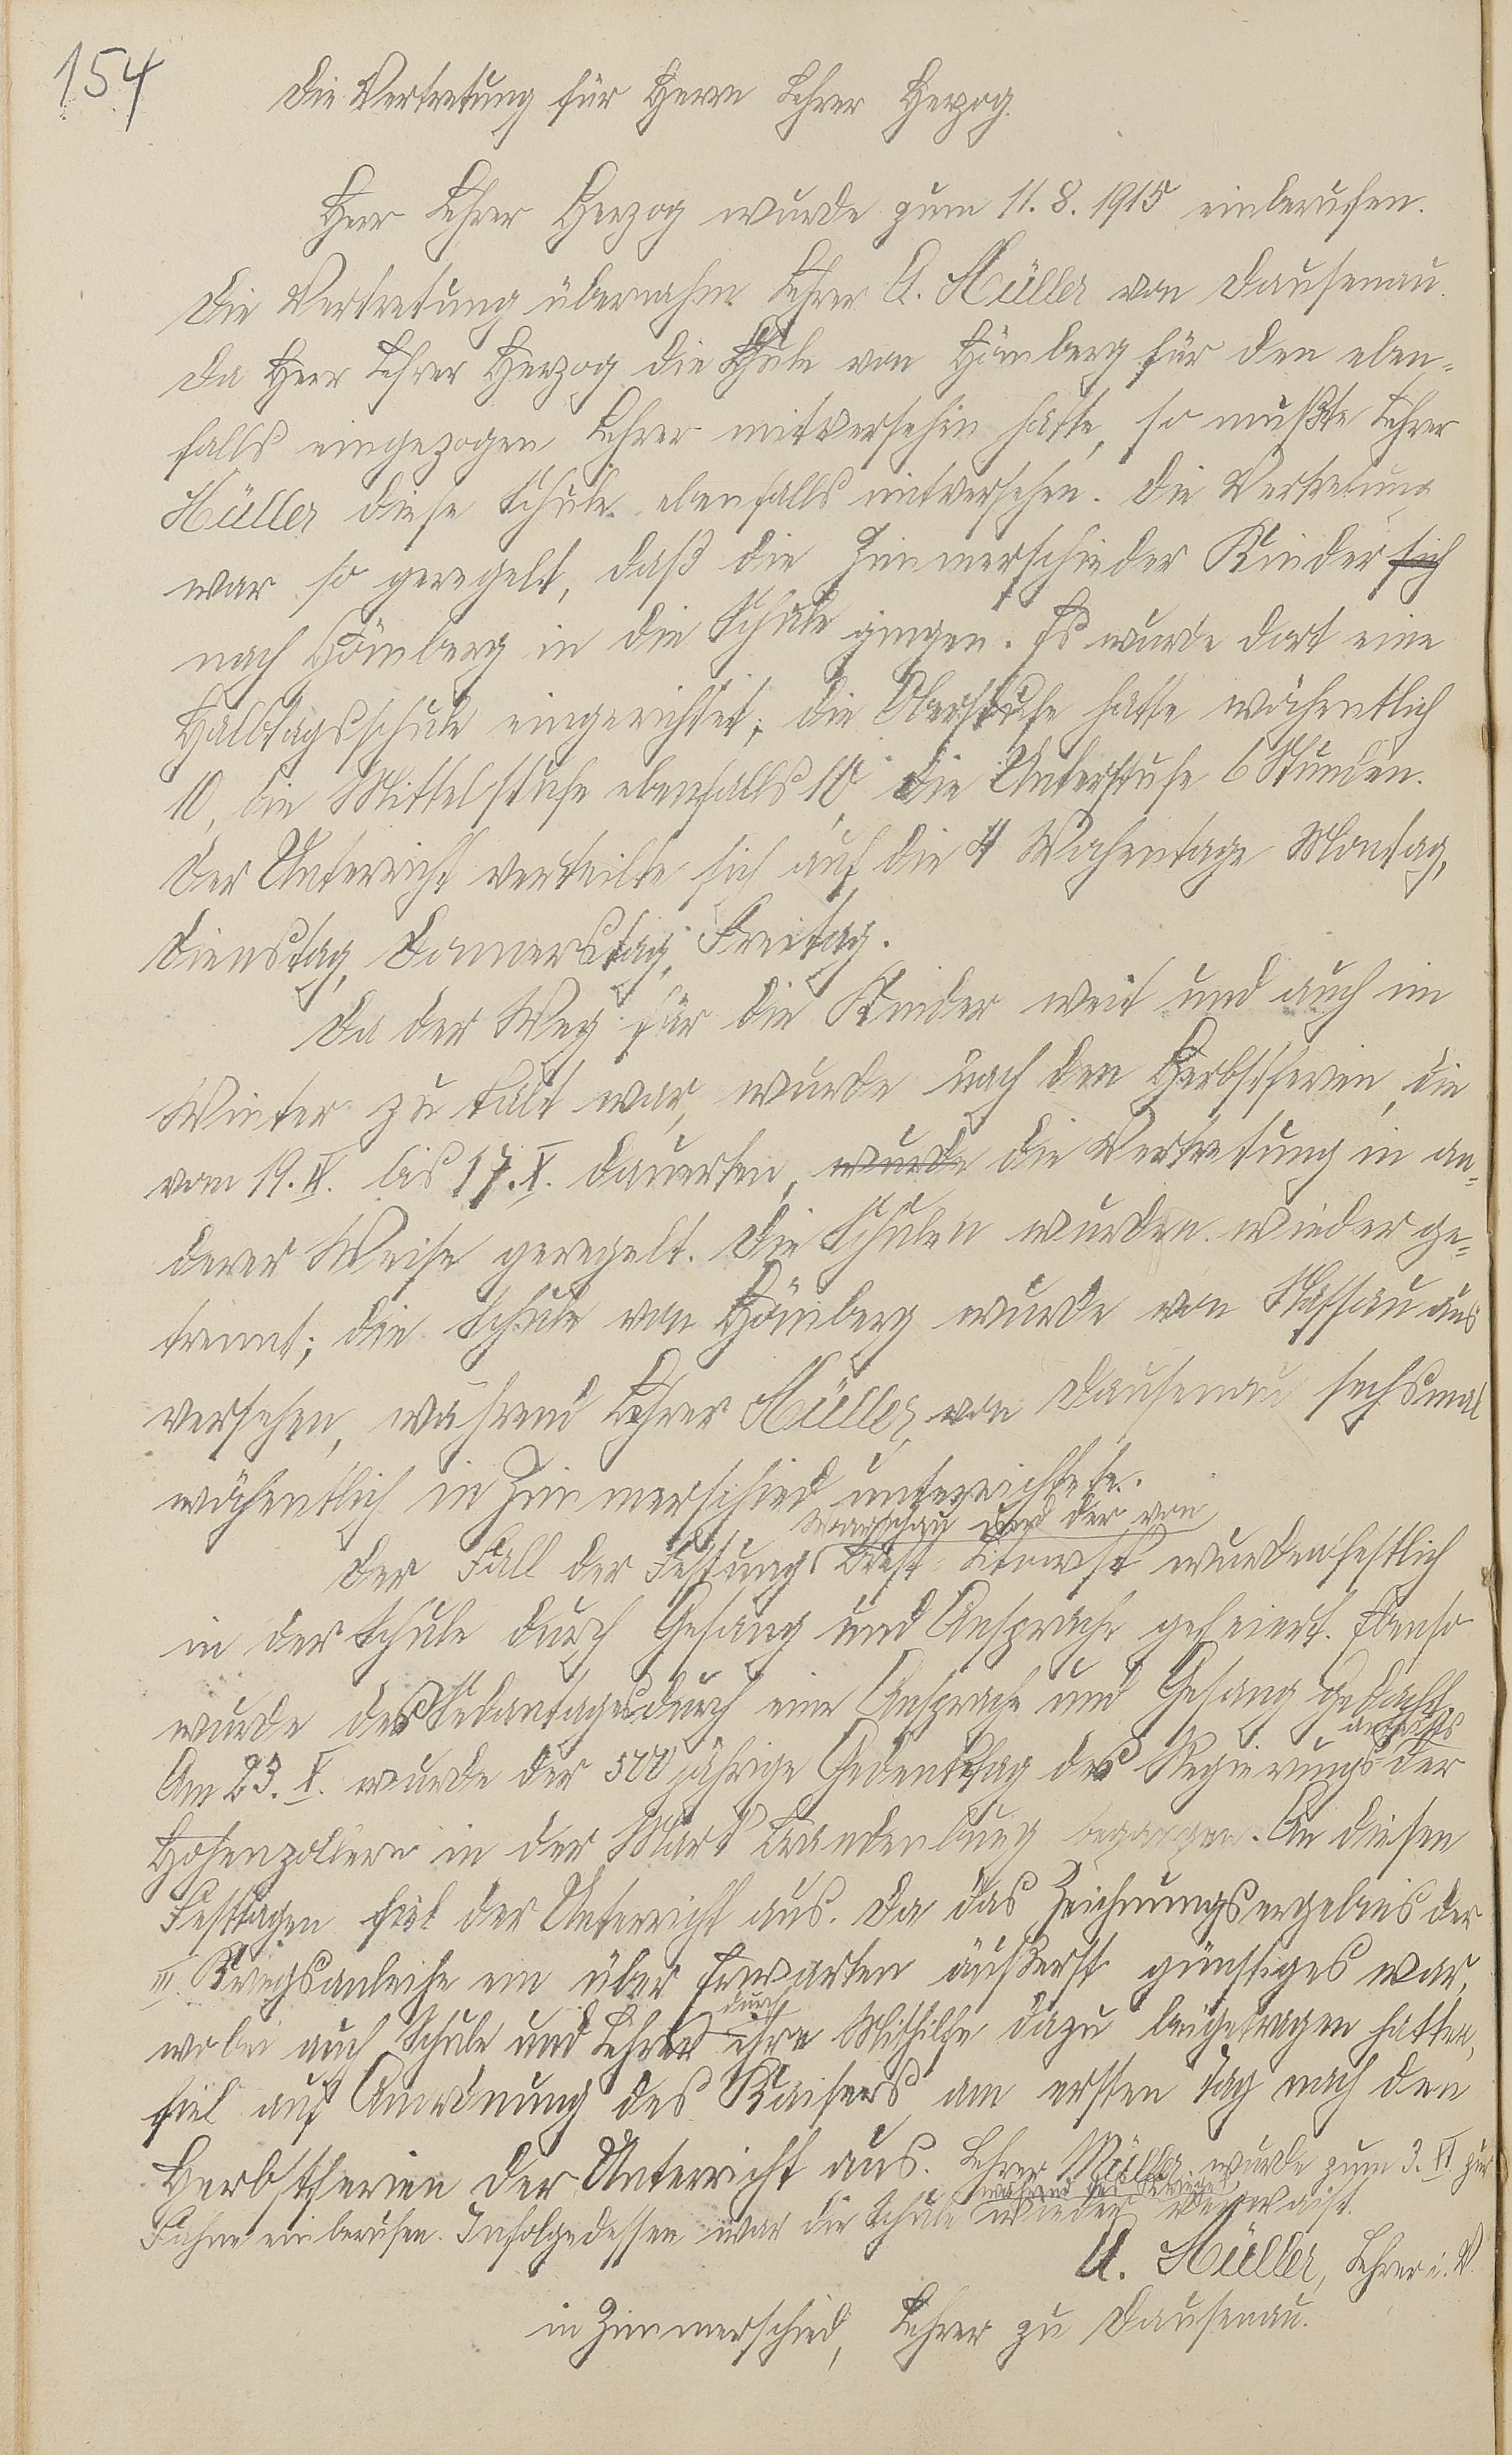 154
Die Vertretung für Herrn Lehrer Herzog.
Herr Lehrer Herzog wurde zum 11. 8. 1915 einberufen.
Die Vertretung übernahm Lehrer A. Müller von Dausenau.
Da Herr Lehrer Herzog die Schule von Hömberg für den eben-
falls eingezogen Lehrer mitversehen hatte, so mußte Lehrer
Müller diese Schule ebenfalls mitversehen. Die Vertretung
war so geregelt, daß die Zimmerschieder Kinder sich
nach Hömberg in die Schule gingen. Es wurde dort eine
Halbtagsschule eingerichtet; die Oberstufe hatte wöchentlich
10, die Mittelstufe ebenfalls 10, die Unterstufe 6 Stunden.
Der Unterricht verteilte sich auf die 4 Wochentage Montag,
Dienstag, Donnerstag, Freitag.
Da der Weg für die Kinder weit und auch im
Winter zu kalt war, wurde nach den Herbstferien, die
vom 19. IX. bis 17. X. dauerten, wurde die Vertretung in an-
derer Weise geregelt. Die Schulen wurden wieder ge-
trennt; die Schule von Hömberg wurde von Nassau aus
versehen, während Lehrer Müller von Dausenau sechsmal
wöchentlich in Zimmerschied unterrichtete.
Warschau und der von
Der Fall der Festung Brest-Litowsk wurden festlich
in der Schule durch Gesang und Ansprache gefeiert. Ebenso
wurde des Sedantages durch eine Ansprache und Gesang gedacht.
antritts
Am 23. X. wurde der 500 jährige Gedenktag des Regierungs- der
Hohenzollern in der Mark Brandenburg begangen. An diesen
Festtagen fiel der Unterricht aus. Da das Zeichnungsergebnis der
III. Kriegsanleihe ein über Erwarten äußerst günstiges war,
durch
wobei auch Schule und Lehrer ihre Mithilfe dazu beigetragen hatten,
fiel auf Anordnung des Kaisers am ersten Tag nach den
Herbstferien der Unterricht aus. Lehrer Müller wurde zum 3. XI. zur
während des Krieges
Fahne einberufen. Infolgedessen war die Schule wieder verwaist.
A. Müller, Lehrer i. V.
in Zimmerschied, Lehrer zu Dausenau.